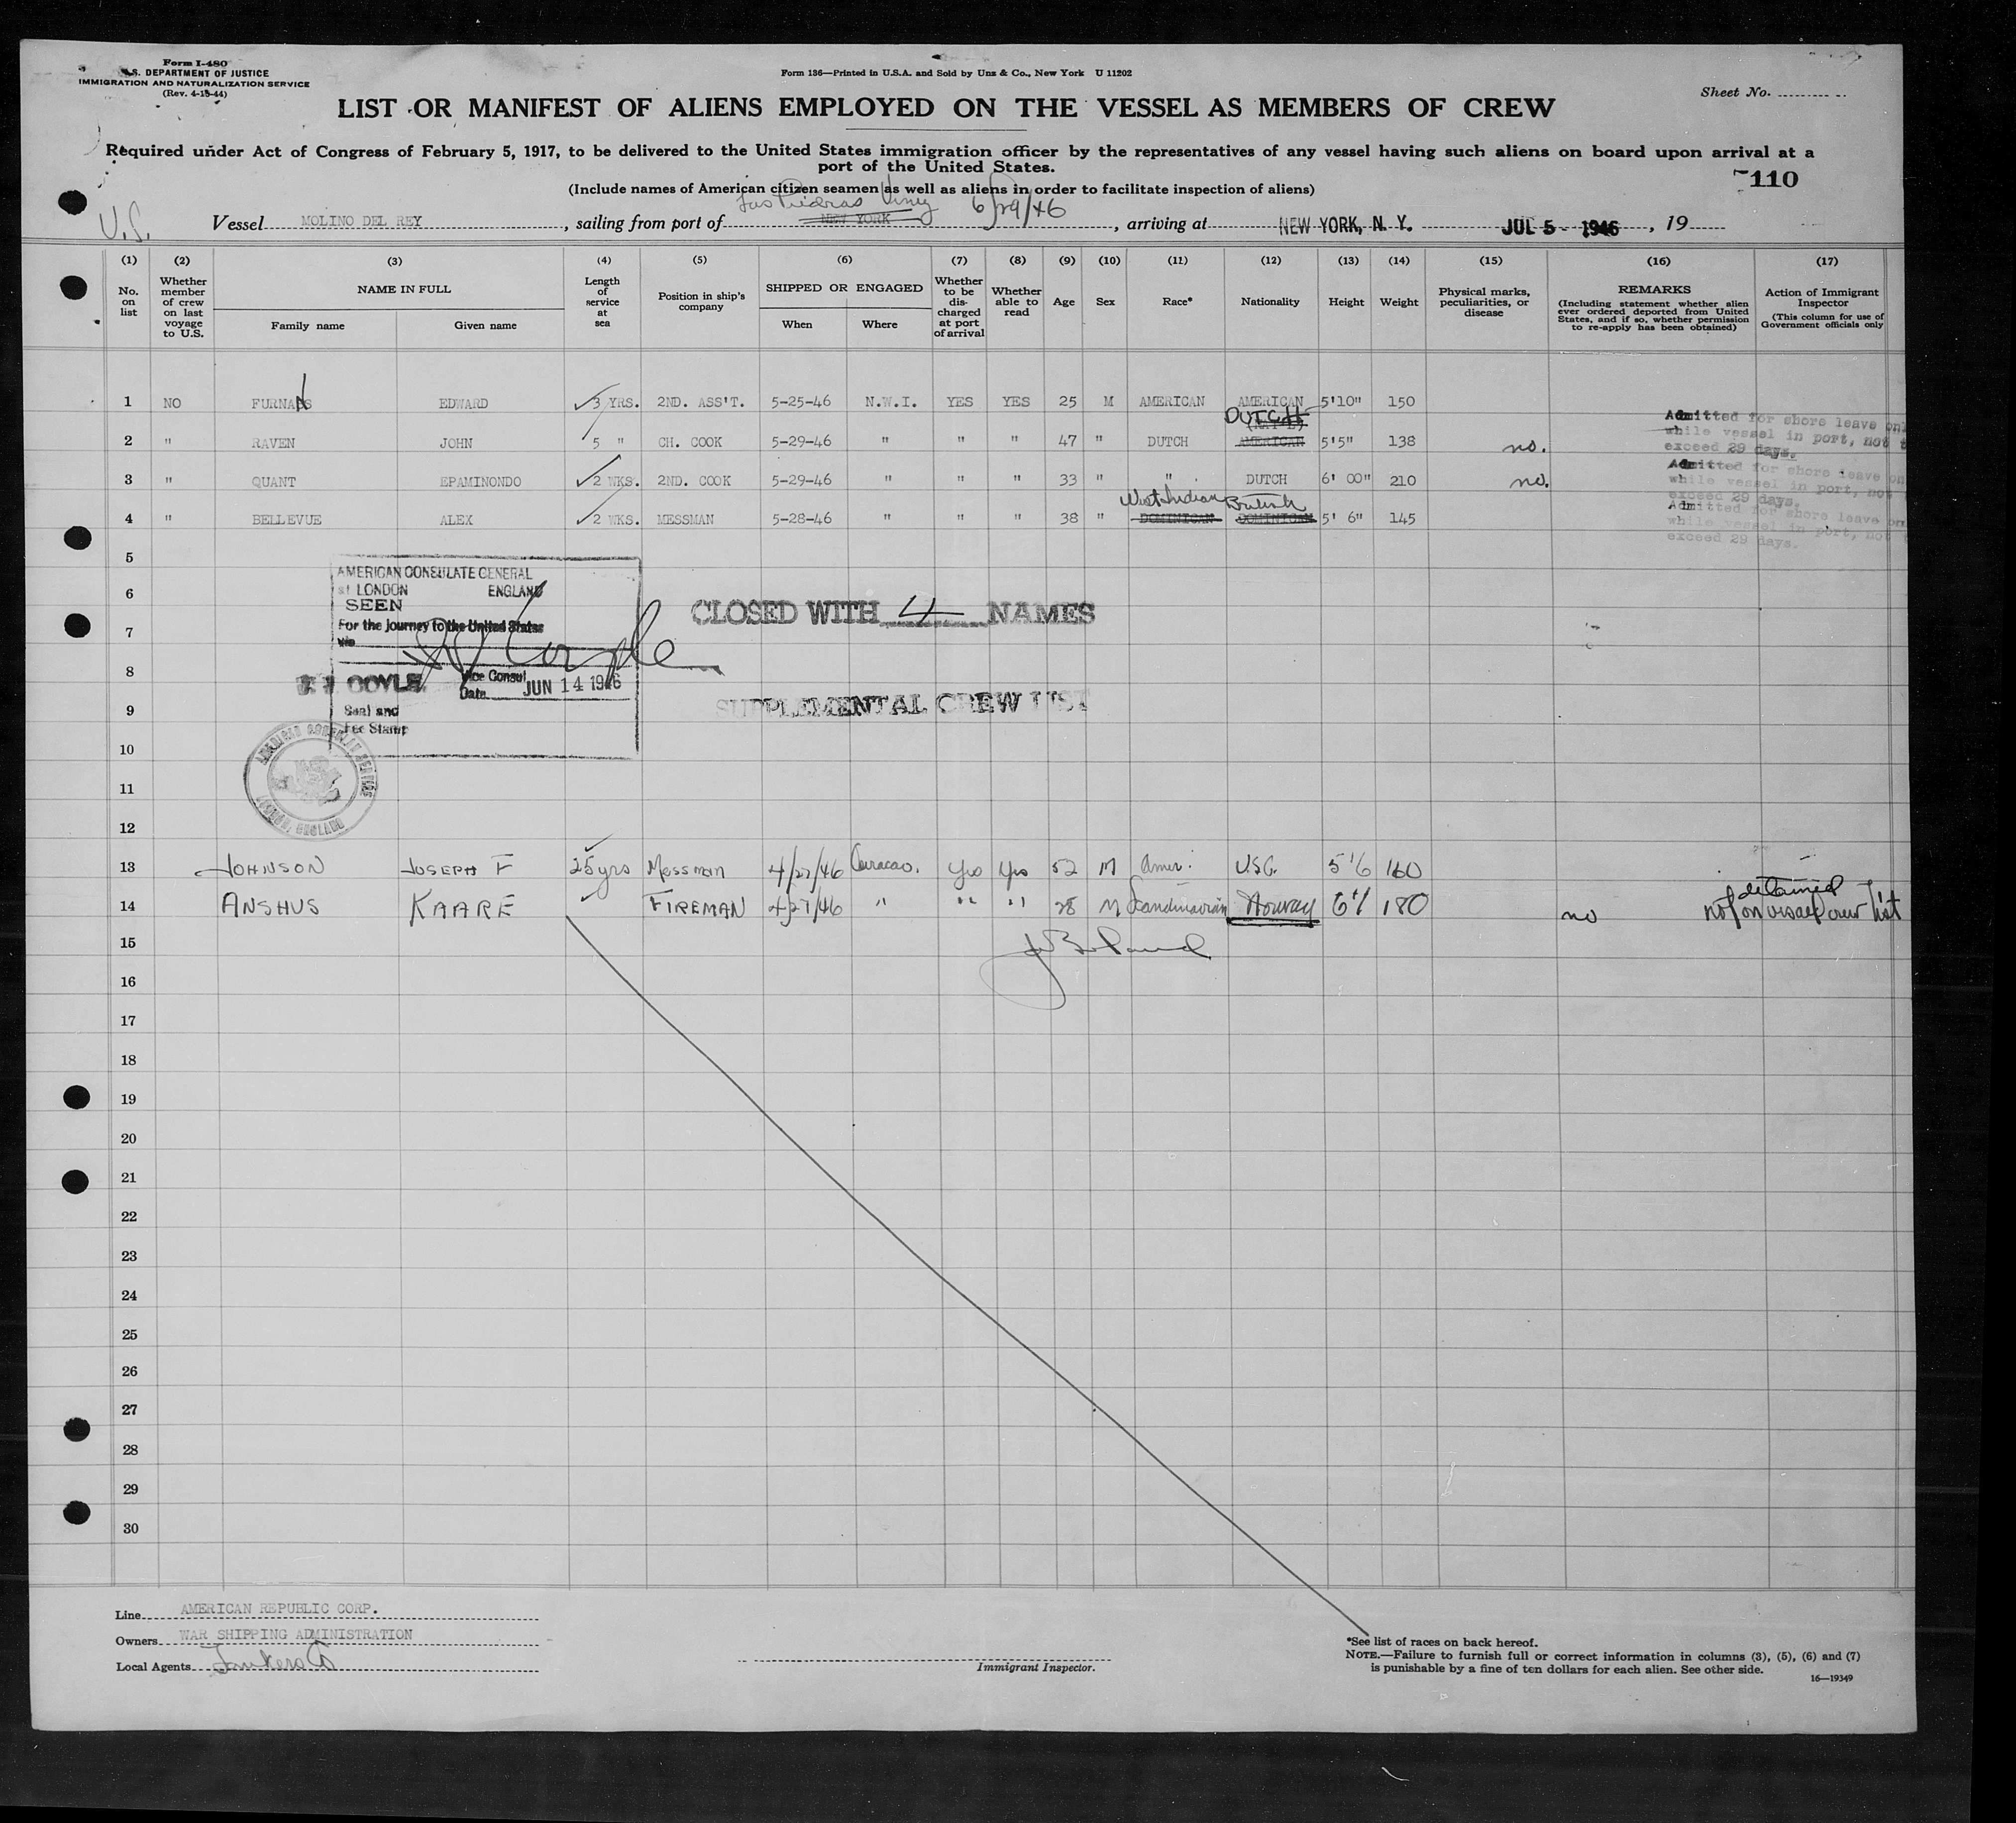 Form I-480
U.S. DEPARTMENT OF JUSTICE
IMMIGRATION AND NATURALIZATION SERVICE
(Rev. 4-15-44)
Form 136—Printed in U.S.A. and Sold by Unz & Co., New York U 11202
Sheet No.
LIST OR MANIFEST OF ALIENS EMPLOYED ON THE VESSEL AS MEMBERS OF CREW
Required under Act of Congress of February 5, 1917, to be delivered to the United States immigration officer by the representatives of any vessel having such aliens on board upon arrival at a
port of the United States.
(Include names of American citizen seamen as well as aliens in order to facilitate inspection of aliens)
110
Las Piedras 6/29/46
U.S. Vessel MOLINO DEL REY, sailing from port of NEW YORK, arriving at NEW YORK, N. Y. JUL 5 - 1946, 19
(1) (2) (3) (4) (5) (6) (7) (8) (9) (10) (11) (12) (13) (14) (15) (16) (17)
No. on list
Whether member of crew on last voyage to U.S.
NAME IN FULL
Family name Given name
Length of service at sea
Position in ship's company
SHIPPED OR ENGAGED
When Where
Whether to be discharged at port of arrival
Whether able to read
Age Sex Race* Nationality Height Weight
Physical marks, peculiarities, or disease
REMARKS
(Including statement whether alien ever ordered deported from United States, and if so, whether permission to re-apply has been obtained)
Action of Immigrant Inspector
(This column for use of Government officials only
1 NO FURNA S EDWARD 3 YRS. 2ND. ASS'T. 5-25-46 N.W.I. YES YES 25 M AMERICAN AMERICAN 5'10" 150
DUTCH
2 " RAVEN JOHN 5 " CH. COOK 5-29-46 " " " 47 " DUTCH AMERICAN 5'5" 138 no. Admitted for shore leave only while vessel in port, not t exceed 29 days.
3 " QUANT EPAMINONDO 2 WKS. 2ND. COOK 5-29-46 " " " 33 " " DUTCH 6' 00" 210 no. Admitted for shore leave on while vessel in port, not exceed 29 days.
West Indian British
4 " BELLEVUE ALEX 2 WKS. MESSMAN 5-28-46 " " " 38 " DOMINICAN DOMINICAN 5' 6" 145 Admitted for shore leave on while vessel in port, not exceed 29 days.
5
6
7
8
9
10
11
12
AMERICAN CONSULATE GENERAL
at LONDON ENGLAND
SEEN
For the journey to the United States
via
COYLE Vice Consul
Date JUN 14 1946
Seal and
Fee Stamp
AMERICAN CONSULAR SERVICE
LONDON, ENGLAND
CLOSED WITH 4 NAMES
SUPPLEMENTAL CREW LIST
13 JOHNSON JOSEPH F 25 yrs Messman 4/27/46 Curacao. Yes Yes 52 M Amer. U.S.C. 5'6 160
detained
14 ANSHUS KAARE FIREMAN 4/27/46 " " " 28 M Scandinavian Norway 6'1 180 no not on visaed crew list
15
16
17
18
19
20
21
22
23
24
25
26
27
28
29
30
Line AMERICAN REPUBLIC CORP.
Owners WAR SHIPPING ADMINISTRATION
Local Agents Tankers Co
Immigrant Inspector.
*See list of races on back hereof.
NOTE.—Failure to furnish full or correct information in columns (3), (5), (6) and (7)
is punishable by a fine of ten dollars for each alien. See other side.
16—19349